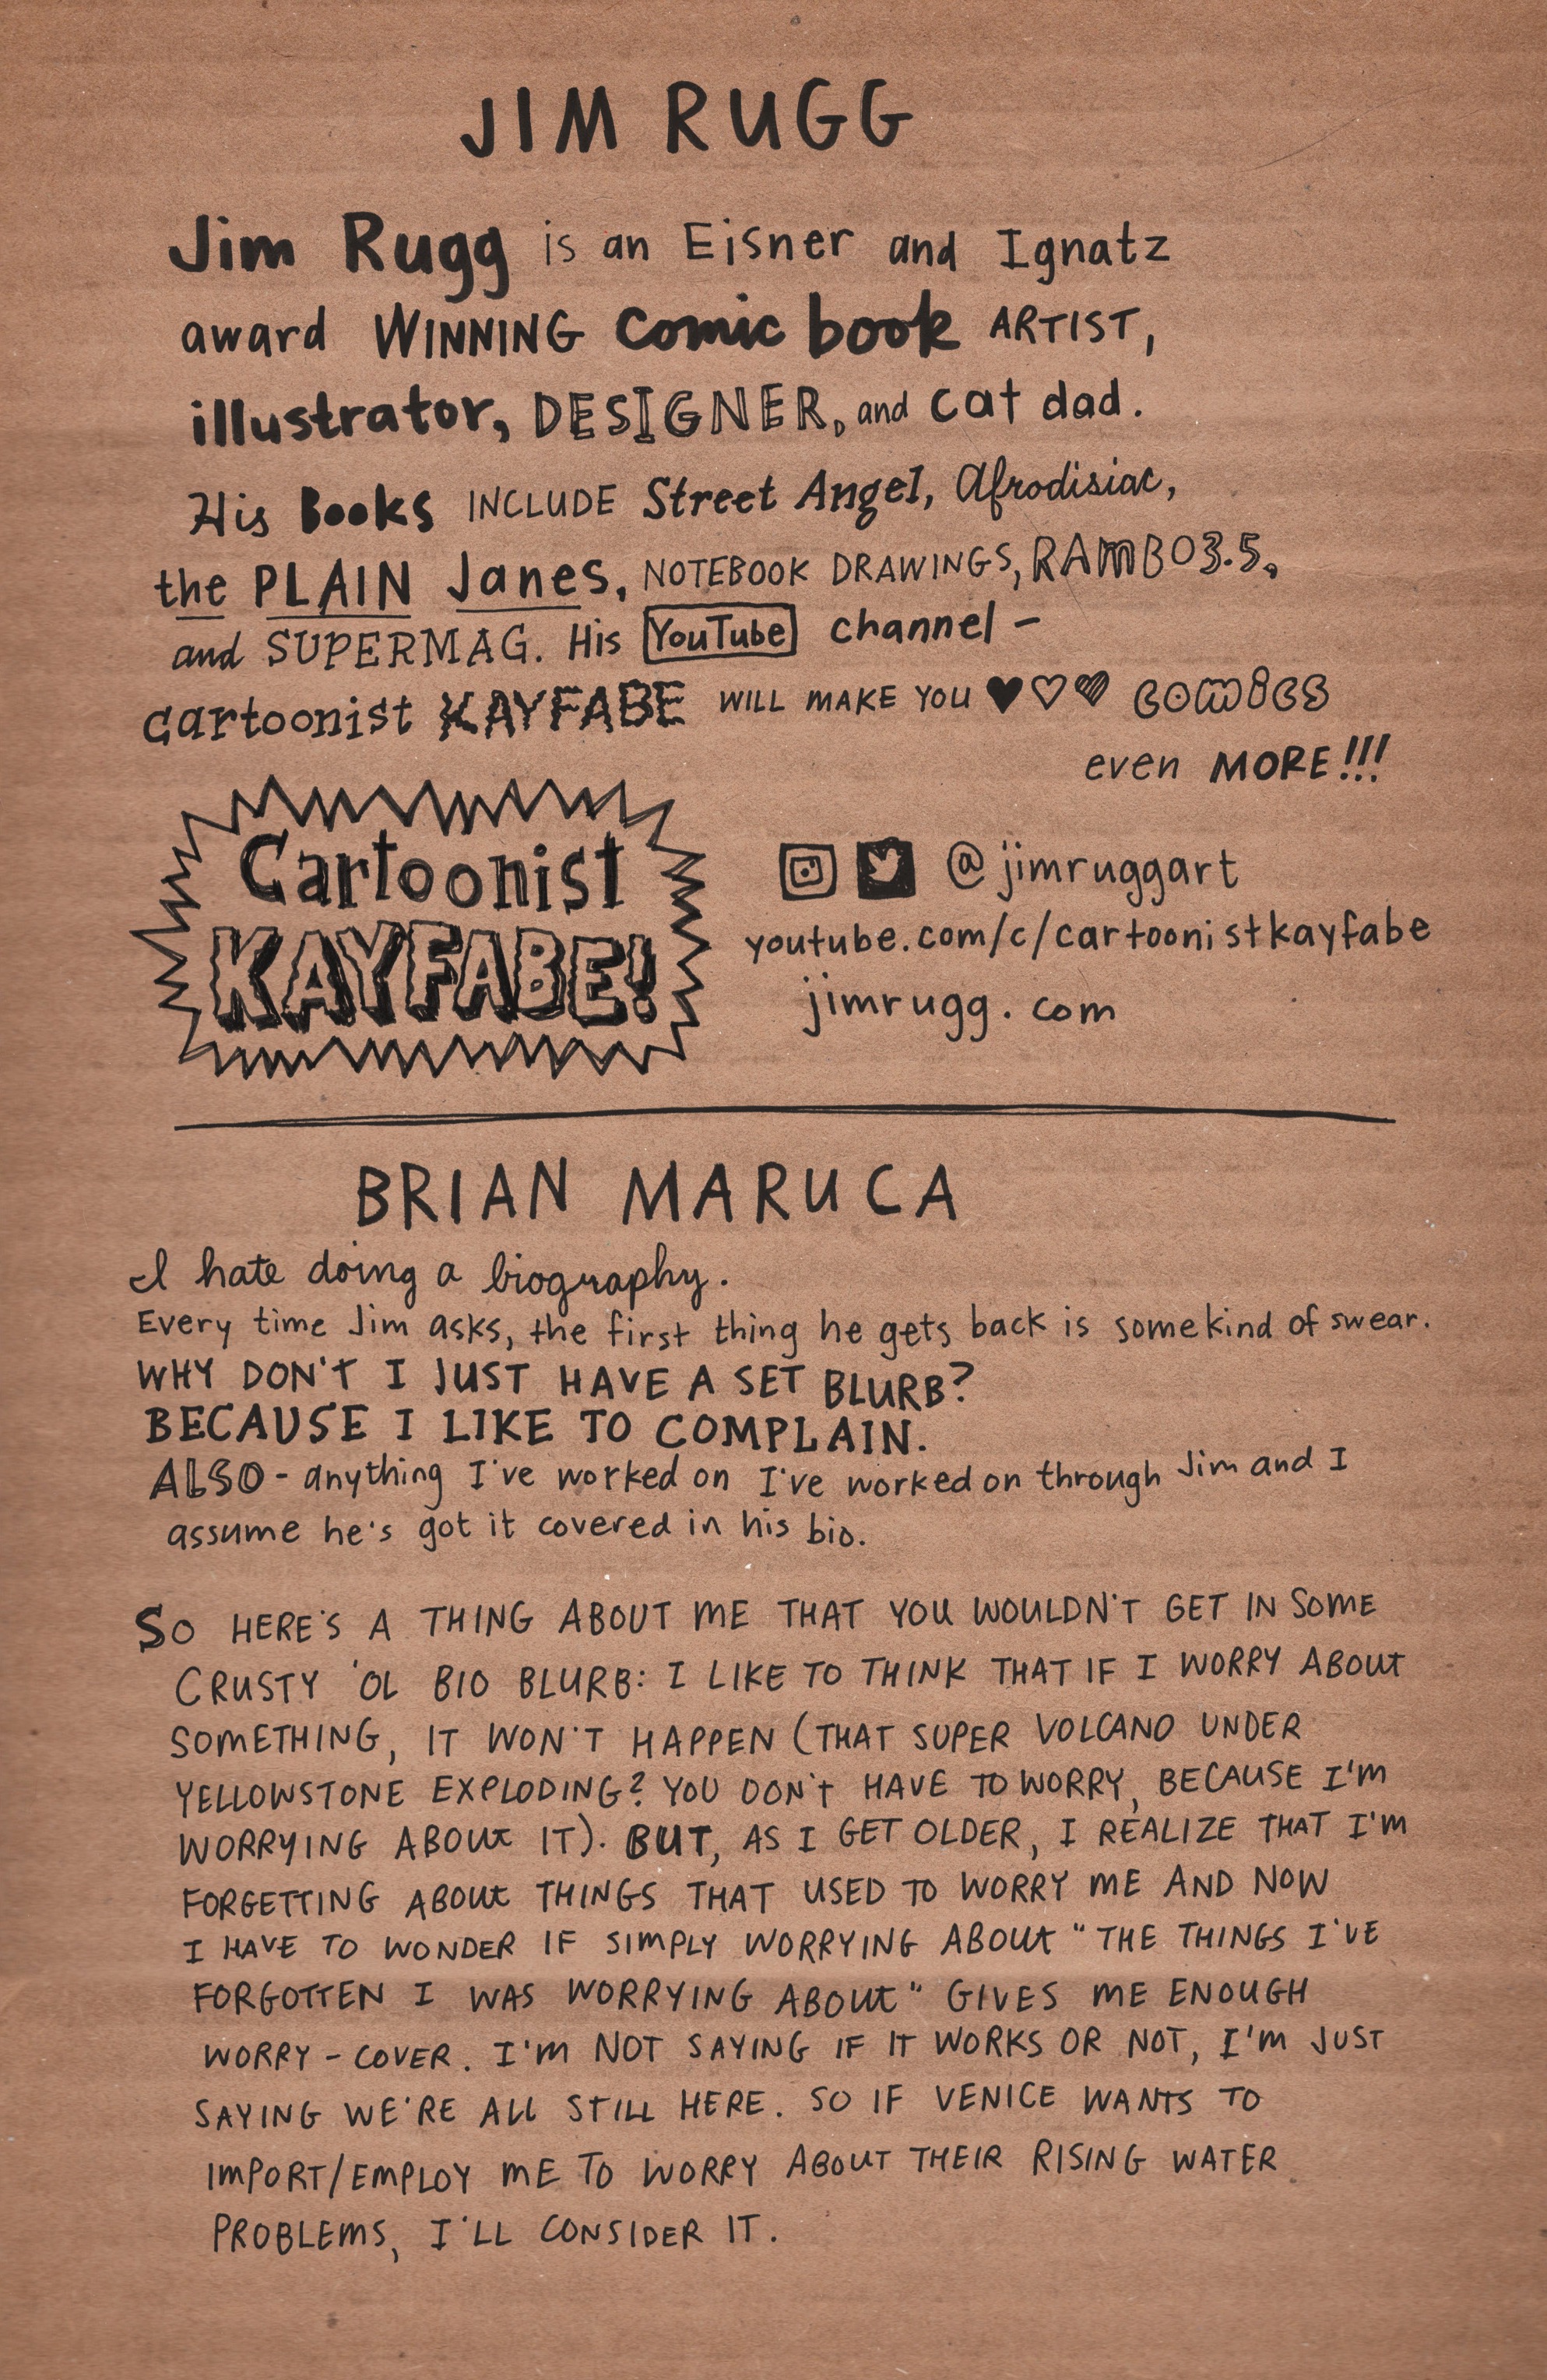 JIM RUGG
Jim Rugg is an Eisner and Ignatz
award WINNING comic book ARTIST,
illustrator, DESIGNER, and cat dad.
His Books INCLUDE Street Angel, Afrodisiac,
the PLAIN Janes, NOTEBOOK DRAWINGS, RAMBO3.5,
and SUPERMAG. His YouTube channel -
cartoonist KAYFABE WILL MAKE YOU ♥♡♥ COMICS
even MORE!!!
Cartoonist
KAYFABE!
@jimruggart
youtube.com/c/cartoonistkayfabe
jimrugg.com
BRIAN MARUCA
I hate doing a biography.
Every time Jim asks, the first thing he gets back is somekind of swear.
WHY DON'T I JUST HAVE A SET BLURB?
BECAUSE I LIKE TO COMPLAIN.
ALSO - anything I've worked on I've worked on through Jim and I
assume he's got it covered in his bio.
SO HERE'S A THING ABOUT ME THAT YOU WOULDN'T GET IN SOME
CRUSTY 'OL BIO BLURB: I LIKE TO THINK THAT IF I WORRY ABOUT
SOMETHING, IT WON'T HAPPEN (THAT SUPER VOLCANO UNDER
YELLOWSTONE EXPLODING? YOU DON'T HAVE TO WORRY, BECAUSE I'M
WORRYING ABOUT IT). BUT, AS I GET OLDER, I REALIZE THAT I'M
FORGETTING ABOUT THINGS THAT USED TO WORRY ME AND NOW
I HAVE TO WONDER IF SIMPLY WORRYING ABOUT "THE THINGS I'VE
FORGOTTEN I WAS WORRYING ABOUT" GIVES ME ENOUGH
WORRY-COVER. I'M NOT SAYING IF IT WORKS OR NOT, I'M JUST
SAYING WE'RE ALL STILL HERE. SO IF VENICE WANTS TO
IMPORT/EMPLOY ME TO WORRY ABOUT THEIR RISING WATER
PROBLEMS, I'LL CONSIDER IT.